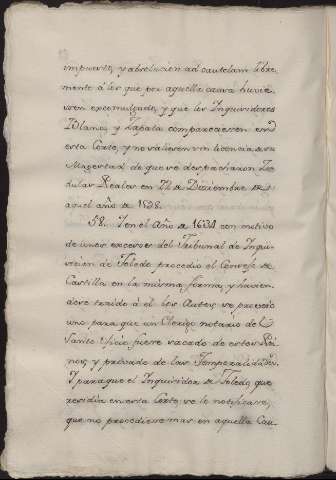 impuesto, y absolucion ad cautelam libre-
mente à los que por aquella causa huvie-
sen excomulgado, y que los Inquisidores
Blanco, y Zapata compareciesen en
esta Corte, y no saliesen sin licencia de su
Magestad de que se despacharon Ze-
dulas Reales en 22 de Diziembre de
aquel año de 1598.
58. Y en el Año de 1634 con motivo
de unos excesos del Tribunal de Inqui-
sicion de Toledo procedio el Consejo de
Castilla en la misma forma, y havien-
dose traido à el los Autos se proveyó
uno para que un Clerigo notario del
Santo Oficio fuese sacado de estos Rei-
nos, y privado de las Temporalidades.
Y para que el Inquisidor de Toledo, que
residia en esta Corte se le notificase,
que no procediese mas en aquella Cau-